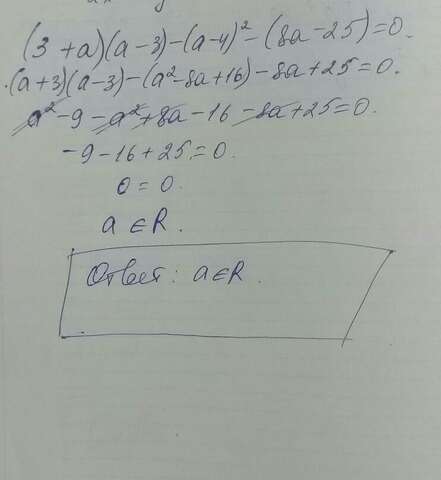 (3 + a)(a - 3) - (a - 4)² - (8a - 25) = 0.
(a + 3)(a - 3) - (a² - 8a + 16) - 8a + 25 = 0.
a² - 9 - a² + 8a - 16 - 8a + 25 = 0.
- 9 - 16 + 25 = 0.
0 = 0.
a ∈ R.
Ответ: a ∈ R.